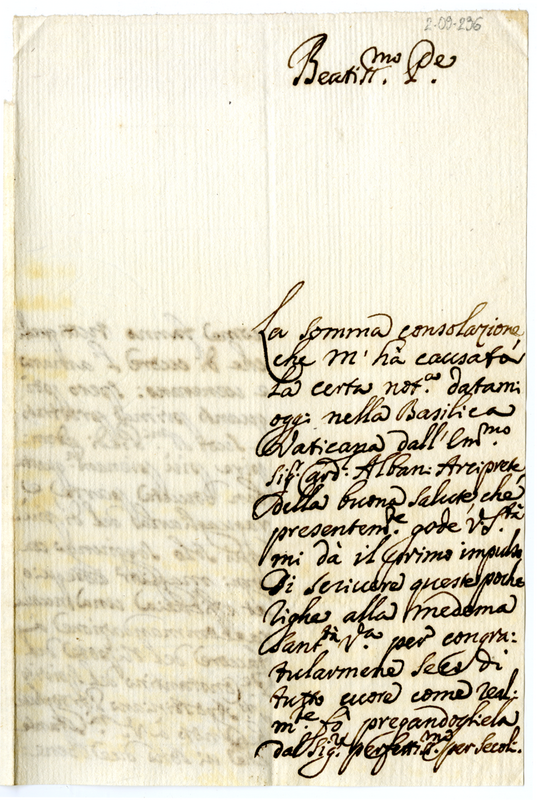 2-09-296
Beatiss.mo P.e
La somma consolazione
che m'hà causato
la certa not.a datami
oggi nella Basilica
Vaticana dall'Em.mo
Sig.r Card. Albani Arciprete
della buona salute, che
presentem.te gode V.S.tà
mi dà il primo impulso
di scrivere queste poche
righe alla medema
Sant.tà V.a per congra:
tularmene seco di
tutto cuore come real:
m.te fò pregandogliela
dal Sig.re perfettiss.ma per secoli.